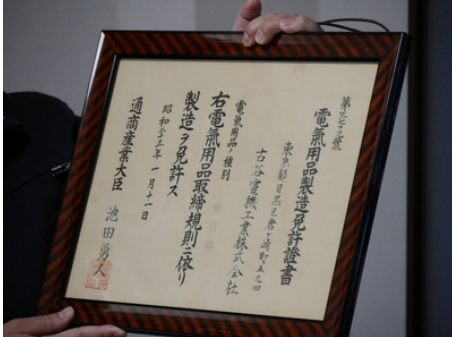 電氣用品製造免許證書
東京都目黒区唐ヶ崎町五九四
古谷電機工業株式会社
電氣用品ノ種別
右電氣用品取締規則ニ依リ
製造ヲ免許ス
昭和三十五年一月十一日
通商産業大臣 池田勇人